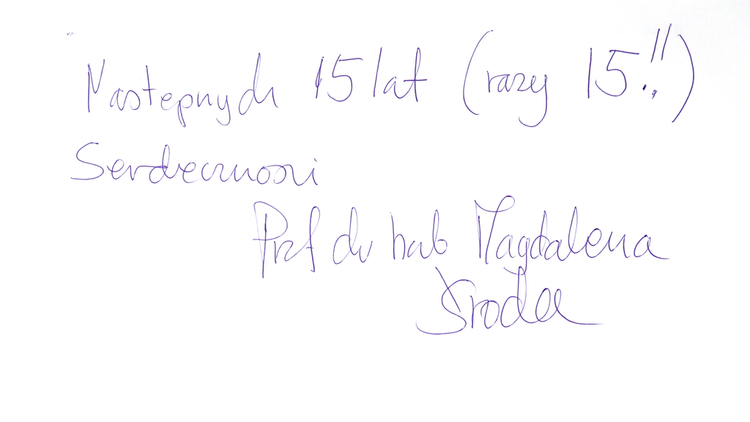 Nastepnych 15 lat (razy 15!!)
Serdeczności
Prof dr hab Magdalena
Środa